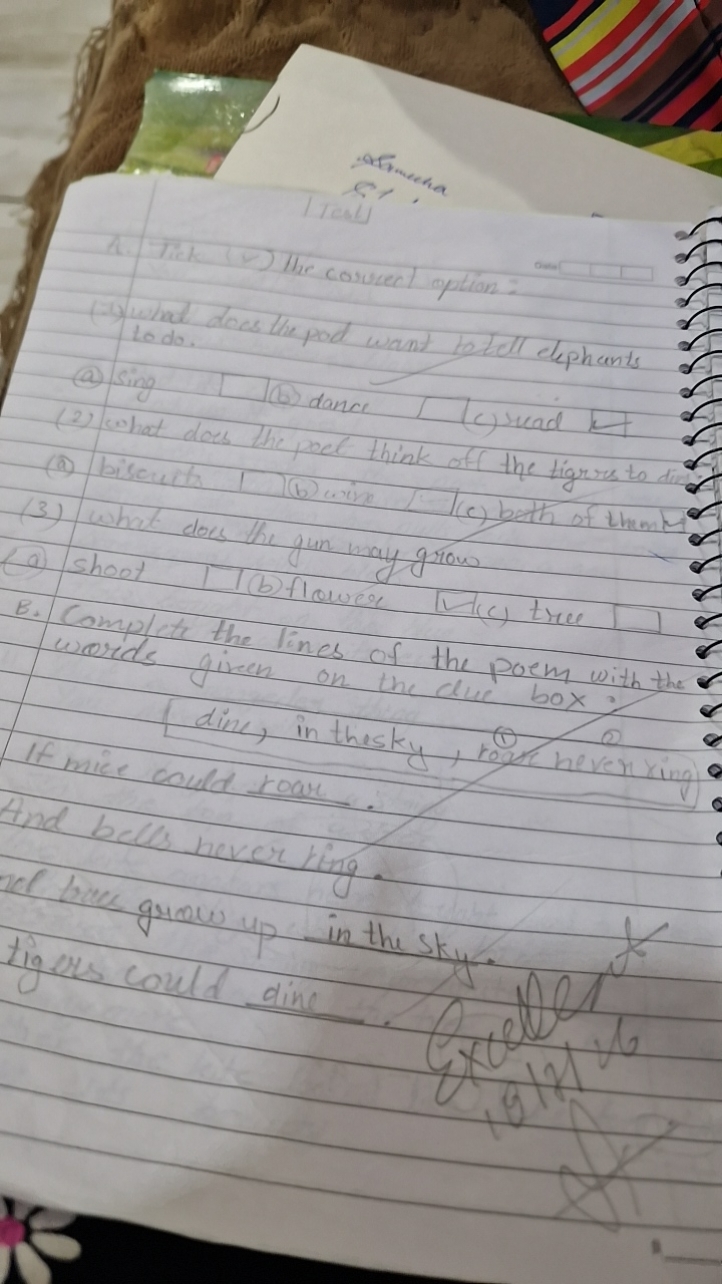 Test
A. Tick (✓) the correct option:
(1) what does the poet want to tell elephants
to do.
(a) sing (b) dance (c) read ✓
(2) what does the poet think off the tigers to
(a) biscuits (b) wire (c) both of them ✓
(3) what does the gun may grow
(a) shoot (b) flower ✓ (c) tree
B. Complete the lines of the poem with the
words given on the clue box:
dine, in the sky, roar never
If mice could roar.
And bells never ring.
grow up in the sky.
tigers could dine.
Excellent